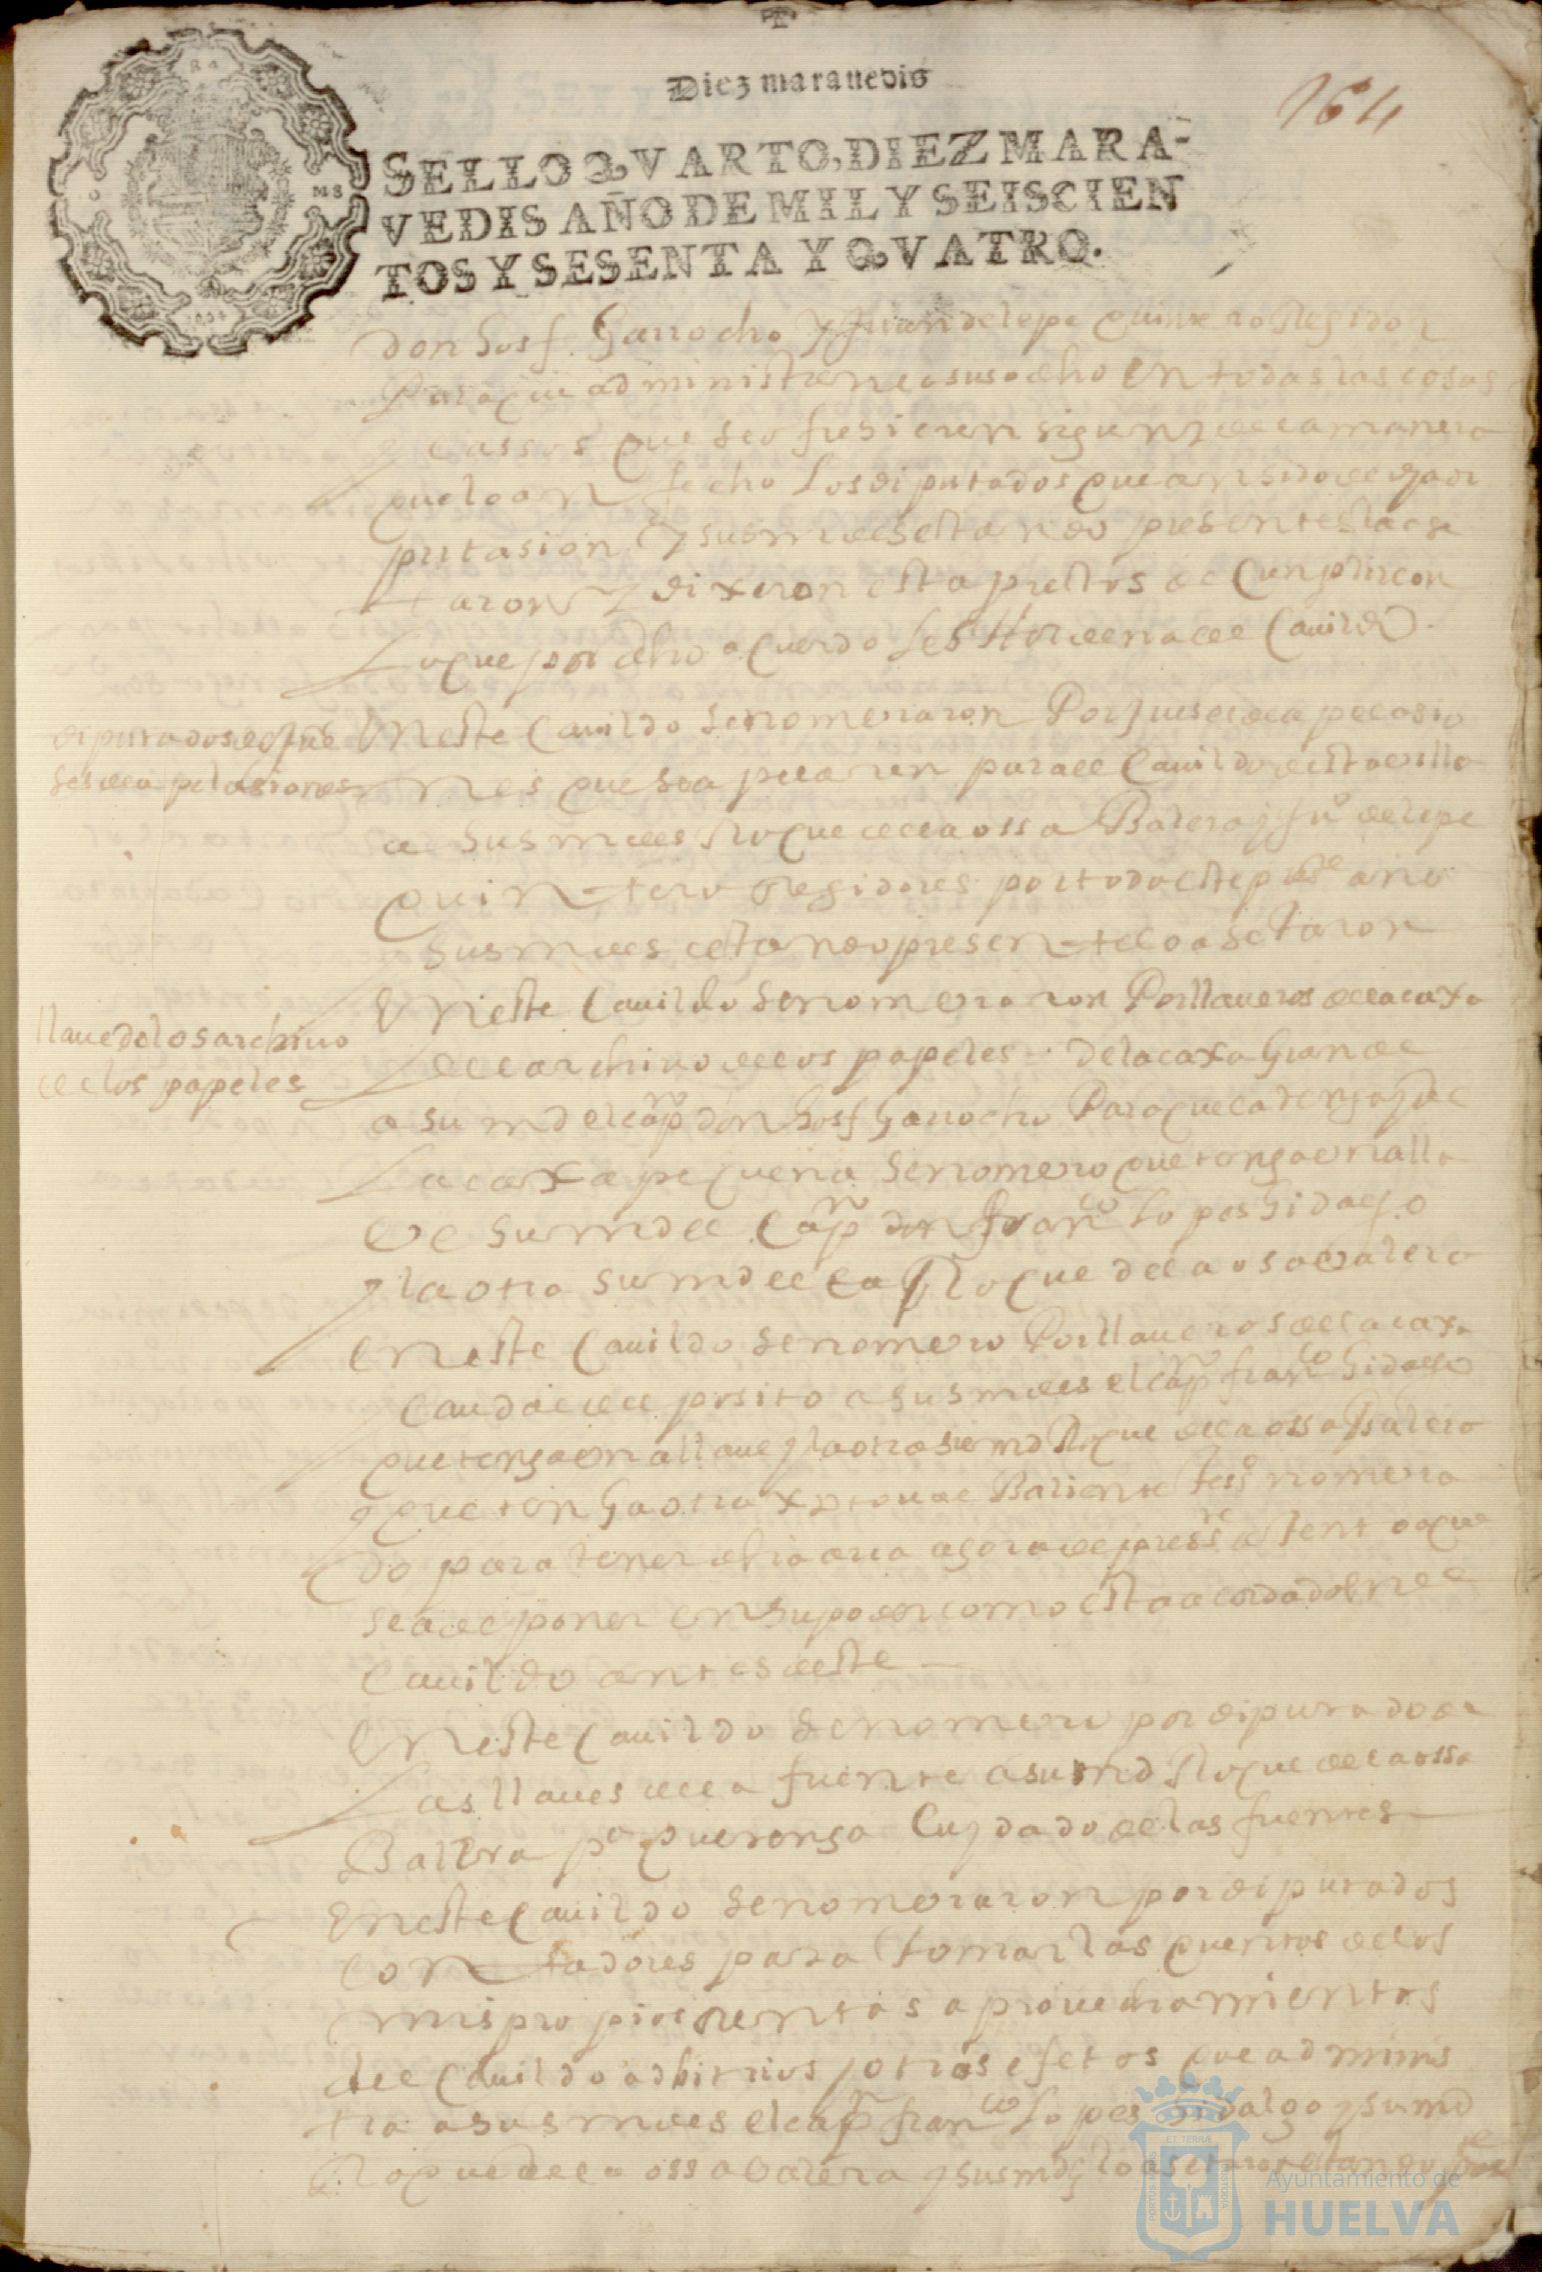 Diez maravedis
164
SELLO QVARTO, DIEZ MARA-
VEDIS AÑO DE MIL Y SEISCIEN
TOS Y SESENTA Y QVATRO.
don Josf Garrocho y Juan de lepe quintero Regidor
Para que administren lo susodcho en todas las cosas
y cassos que se ofresieren sigun y de la manera
que lo an fecho los diputados que an sido de dha di
putasion y sus mdes estando presentes la ase
taron y dixeron esta prestos de cunplir con
lo que por dcho acuerdo les Hordena el Cavildo
diputados de Jue
ses de apelasiones
En este Cavildo se nomeraron Por Jueses de apelasio
nes que se apelaren para el Cavildo desta villa
a sus mdes Roque de la ossa Balera y Ju° de lepe
quintero Regidores por todo este preste año
sus mdes estando presente lo asetaron
llave de los archivo
de los papeles
En este Cavildo se nomeraron Por llaveros de la caxa
del archivo de los papeles de la caxa Grande
a su md el capn don Josf Garrocho Para que la tenga y de
la caxa pequena se nomero que tenga una lla
ve su md el Capn don Franco Lopes hidalgo
y la otra su md el Roque de la osa balera
En este Cavildo se nomero Por llaveros de la caxa
caudal del posito a sus mdes el capn franco hidalgo
que tenga una llave y la otra su md Roque de la ossa Balera
y que tenga otra xptoval Baliente nomera
do para tener dha arca agora de preste atento a que
se a de poner en su poder como esta acordado en el
Cavildo antes deste
En este Cavildo se nomero por diputado de
las llaves de la fuente a su md Roque de la ossa
Balera pa que tenga Cuydado de las fuentes
En este Cavildo se nomeraron por diputados
contadores para tomar las quentas de los
mis propios rentas aprovechamientos
del Cavildo adbitrios y otros efetos que adminis
tra a sus mdes el capn franco Lopes hidalgo y su md
Roque de la ossa balera y sus mds lo asetaron estando pres
PORTUS MARIS
ET TERRÆ
CUSTODIA
Ayuntamiento de
HUELVA